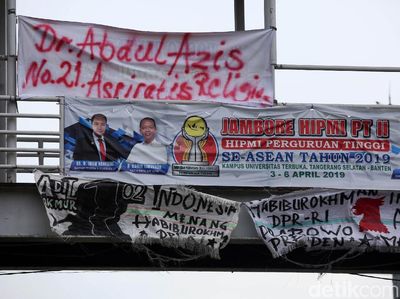 Dr. Abdul Azis
No.21 Aspiratif Religius
JAMBORE HIPMI PT II
HIPMI PERGURUAN TINGGI
SE-ASEAN TAHUN 2019
KAMPUS UNIVERSITAS TERBUKA, TANGERANG SELATAN - BANTEN
3 - 6 APRIL 2019
ADIL
MAKMUR
02 INDONESIA
MENANG
HABIBUROKHMAN
DPR
HABIBUROKHMAN
DPR-RI
PRABOWO
PRESIDEN
detikcom